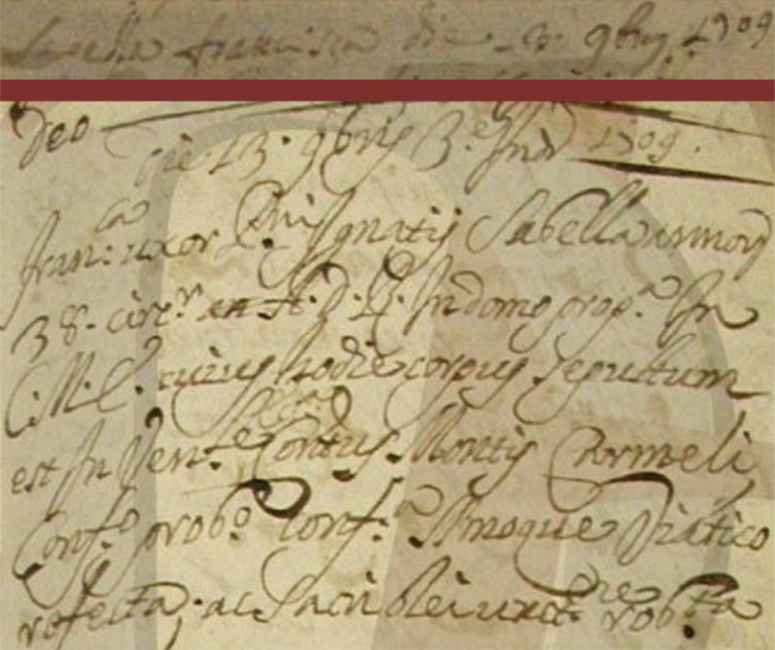 Sabella Francisca die 13. 9bris 1709
Deo
Die 13. 9bris 3.e Ind. 1709.
Fran:ca uxor D.ni Ignatij Sabella annor
38. circ.r in domo prop.a In
C.M.E. cuius hodie corpus sepultum
est In Ven.le Contus Montis Carmeli
Conf.o prob.o Conf.a SSmoque Viatico
refecta; ac Sacri Olei unct.e robta